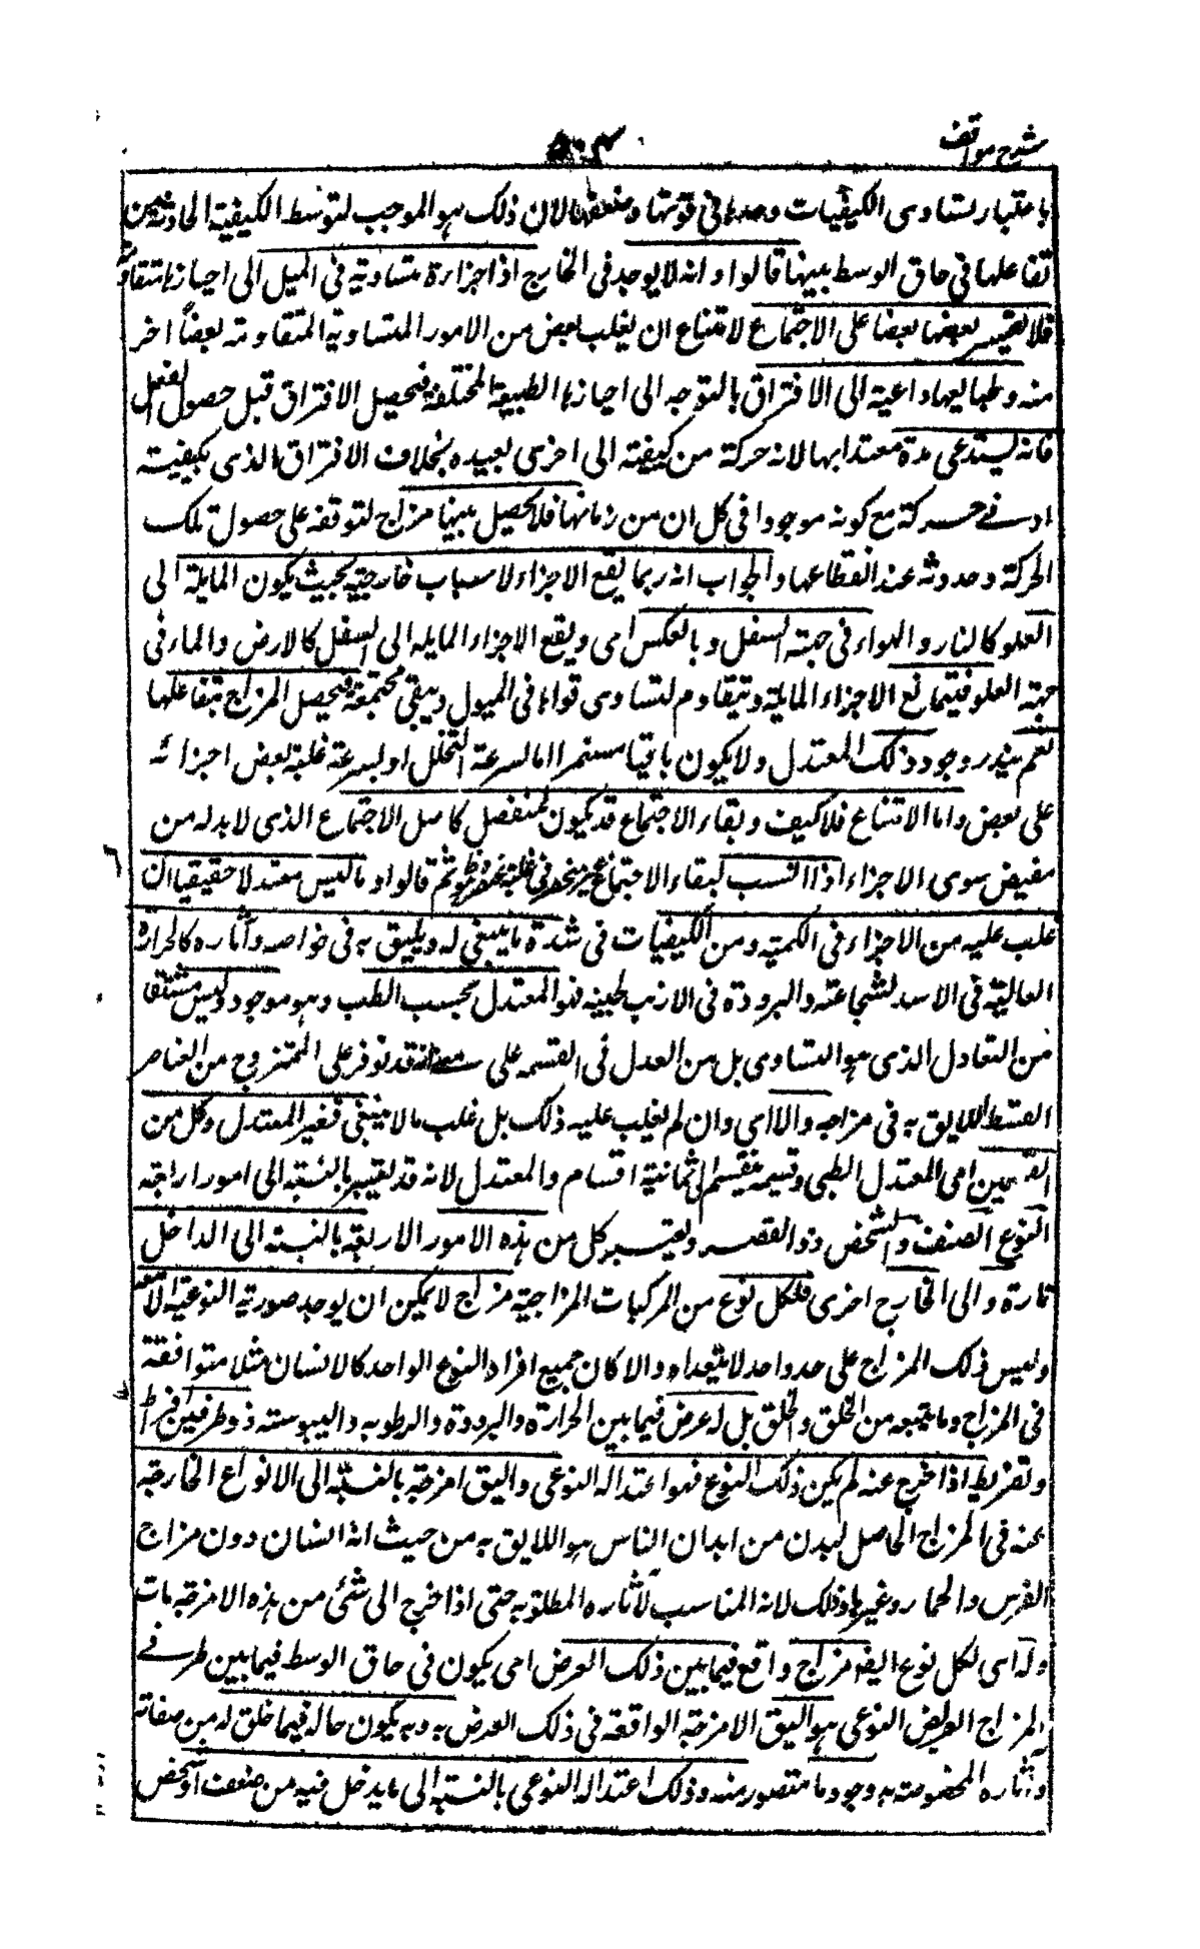 شرح مواقف
٥٠٤
باعتبار تساوى الكيفيات وحدها فى قوتها وضعفها لان ذلك هو الموجب لتوسط الكيفية الحادثة من
تفاعلها فى حاق الوسط بينها قالوا وانه لا يوجد فى الخارج اذ اجزاءه متساوية فى الميل الى احيازها المتفاوتة
فلا يقسر بعضها بعضا على الاجتماع لامتناع ان يغلب بعض من الامور المتساوية المتقاومة بعضاً اخر
منه وطبايعها داعية الى الافتراق بالتوجه الى احيازها الطبيعية المختلفة فيحصل الافتراق قبل حصول الفعل
فانه يستدعى مدة معتدا بها لانه حركة من كيفية الى اخرى بعيده بخلاف الافتراق الذى يكفيه
ادنى حركة مع كونه موجودا فى كل ان من زمانها فلا يحصل بينها مزاج لتوقفه على حصول تلك
الحركة وحدوثه عند انقطاعها والجواب انه ربما يقع الاجزاء لاسباب خارجية بحيث يكون المايلة الى
العلو كالنار والهواء فى جهة السفل وبالعكس اى ويقع الاجزاء المايله الى السفل كالارض والماء فى
جهة العلو فيتمانع الاجزاء المايلة ويتقاوم لتساوى قواها فى الميول ويبقى مجتمعة فيحصل المزاج بتفاعلها
نعم يندر وجود ذلك المعتدل ولا يكون باقيا مستمرا اما لسرعة التحلل او لسرعة غلبة بعض اجزائه
على بعض واما الامتناع فلا كيف وبقاء الاجتماع قد يكون لمنفصل كاصل الاجتماع الذى لا بد له من
مقتض سوى الاجزاء اذ السبب لبقاء الاجتماع غير منحصر فى غلبة ثم قالوا وما ليس معتدلا حقيقيا ان
غلب عليه من الاجزاء فى الكمية ومن الكيفيات فى شدة ما ينبغى له ويليق به فى خواصه وآثاره كالحرارة
العالية فى الاسد لشجاعته والبرودة فى الارنب لجبنه فهو المعتدل بحسب الطب وهو موجود وليس مشتقا
من التعادل الذى هو التساوى بل من العدل فى القسمه على معنى انه قد توفر على الممتزج من العناصر
القسط اللايق به فى مزاجه والا اى وان لم يغلب عليه ذلك بل غلب ما لا ينبغى فغير المعتدل وكل من
القسمين اى المعتدل الطبى وقسيمه ينقسم الى ثمانية اقسام والمعتدل لانه قد يعتبر بالنسبة الى امور اربعة
النوع الصنف والشخص والعضو ويعتبر كل من هذه الامور الاربعة بالنسبة الى الداخل
تارة والى الخارج اخرى فلكل نوع من المركبات المزاجية مزاج لا يمكن ان يوجد صورته النوعية الا معه
وليس ذلك المزاج على حد واحد لا يتعداه والا كان جميع افراد النوع الواحد كالانسان مثلا متوافقة
فى المزاج وما يتبعه من الخلق والخلق بل له عرض فيما بين الحرارة والبرودة والرطوبه واليبوسته ذو طرفين افراط
وتفريط اذا خرج عنه لم يكن ذلك النوع فهو اعتداله النوعى واليق امزجة بالنسبة الى الانواع الخارجة
عنه فى المزاج الحاصل لبدن من ابدان الناس هو اللايق به من حيث انه انسان دون مزاج
الفرس والحمار وغيرها وذلك لانه المناسب لآثاره المطلوبه حتى اذا خرج الى شئ من هذه الامزجة مات
وله اى لكل نوع ايضا مزاج واقع فيما بين ذلك العرض اى يكون فى حاق الوسط فيما بين طرفى
المزاج العريض النوعى هو اليق الامزجة الواقعة فى ذلك العرض به وبه يكون حاله فيما خلق له من صفاته
وآثاره المخصوصة به وجود ما متصور منه وذلك اعتداله النوعى بالنسبة الى ما يدخل فيه من صنف او شخص